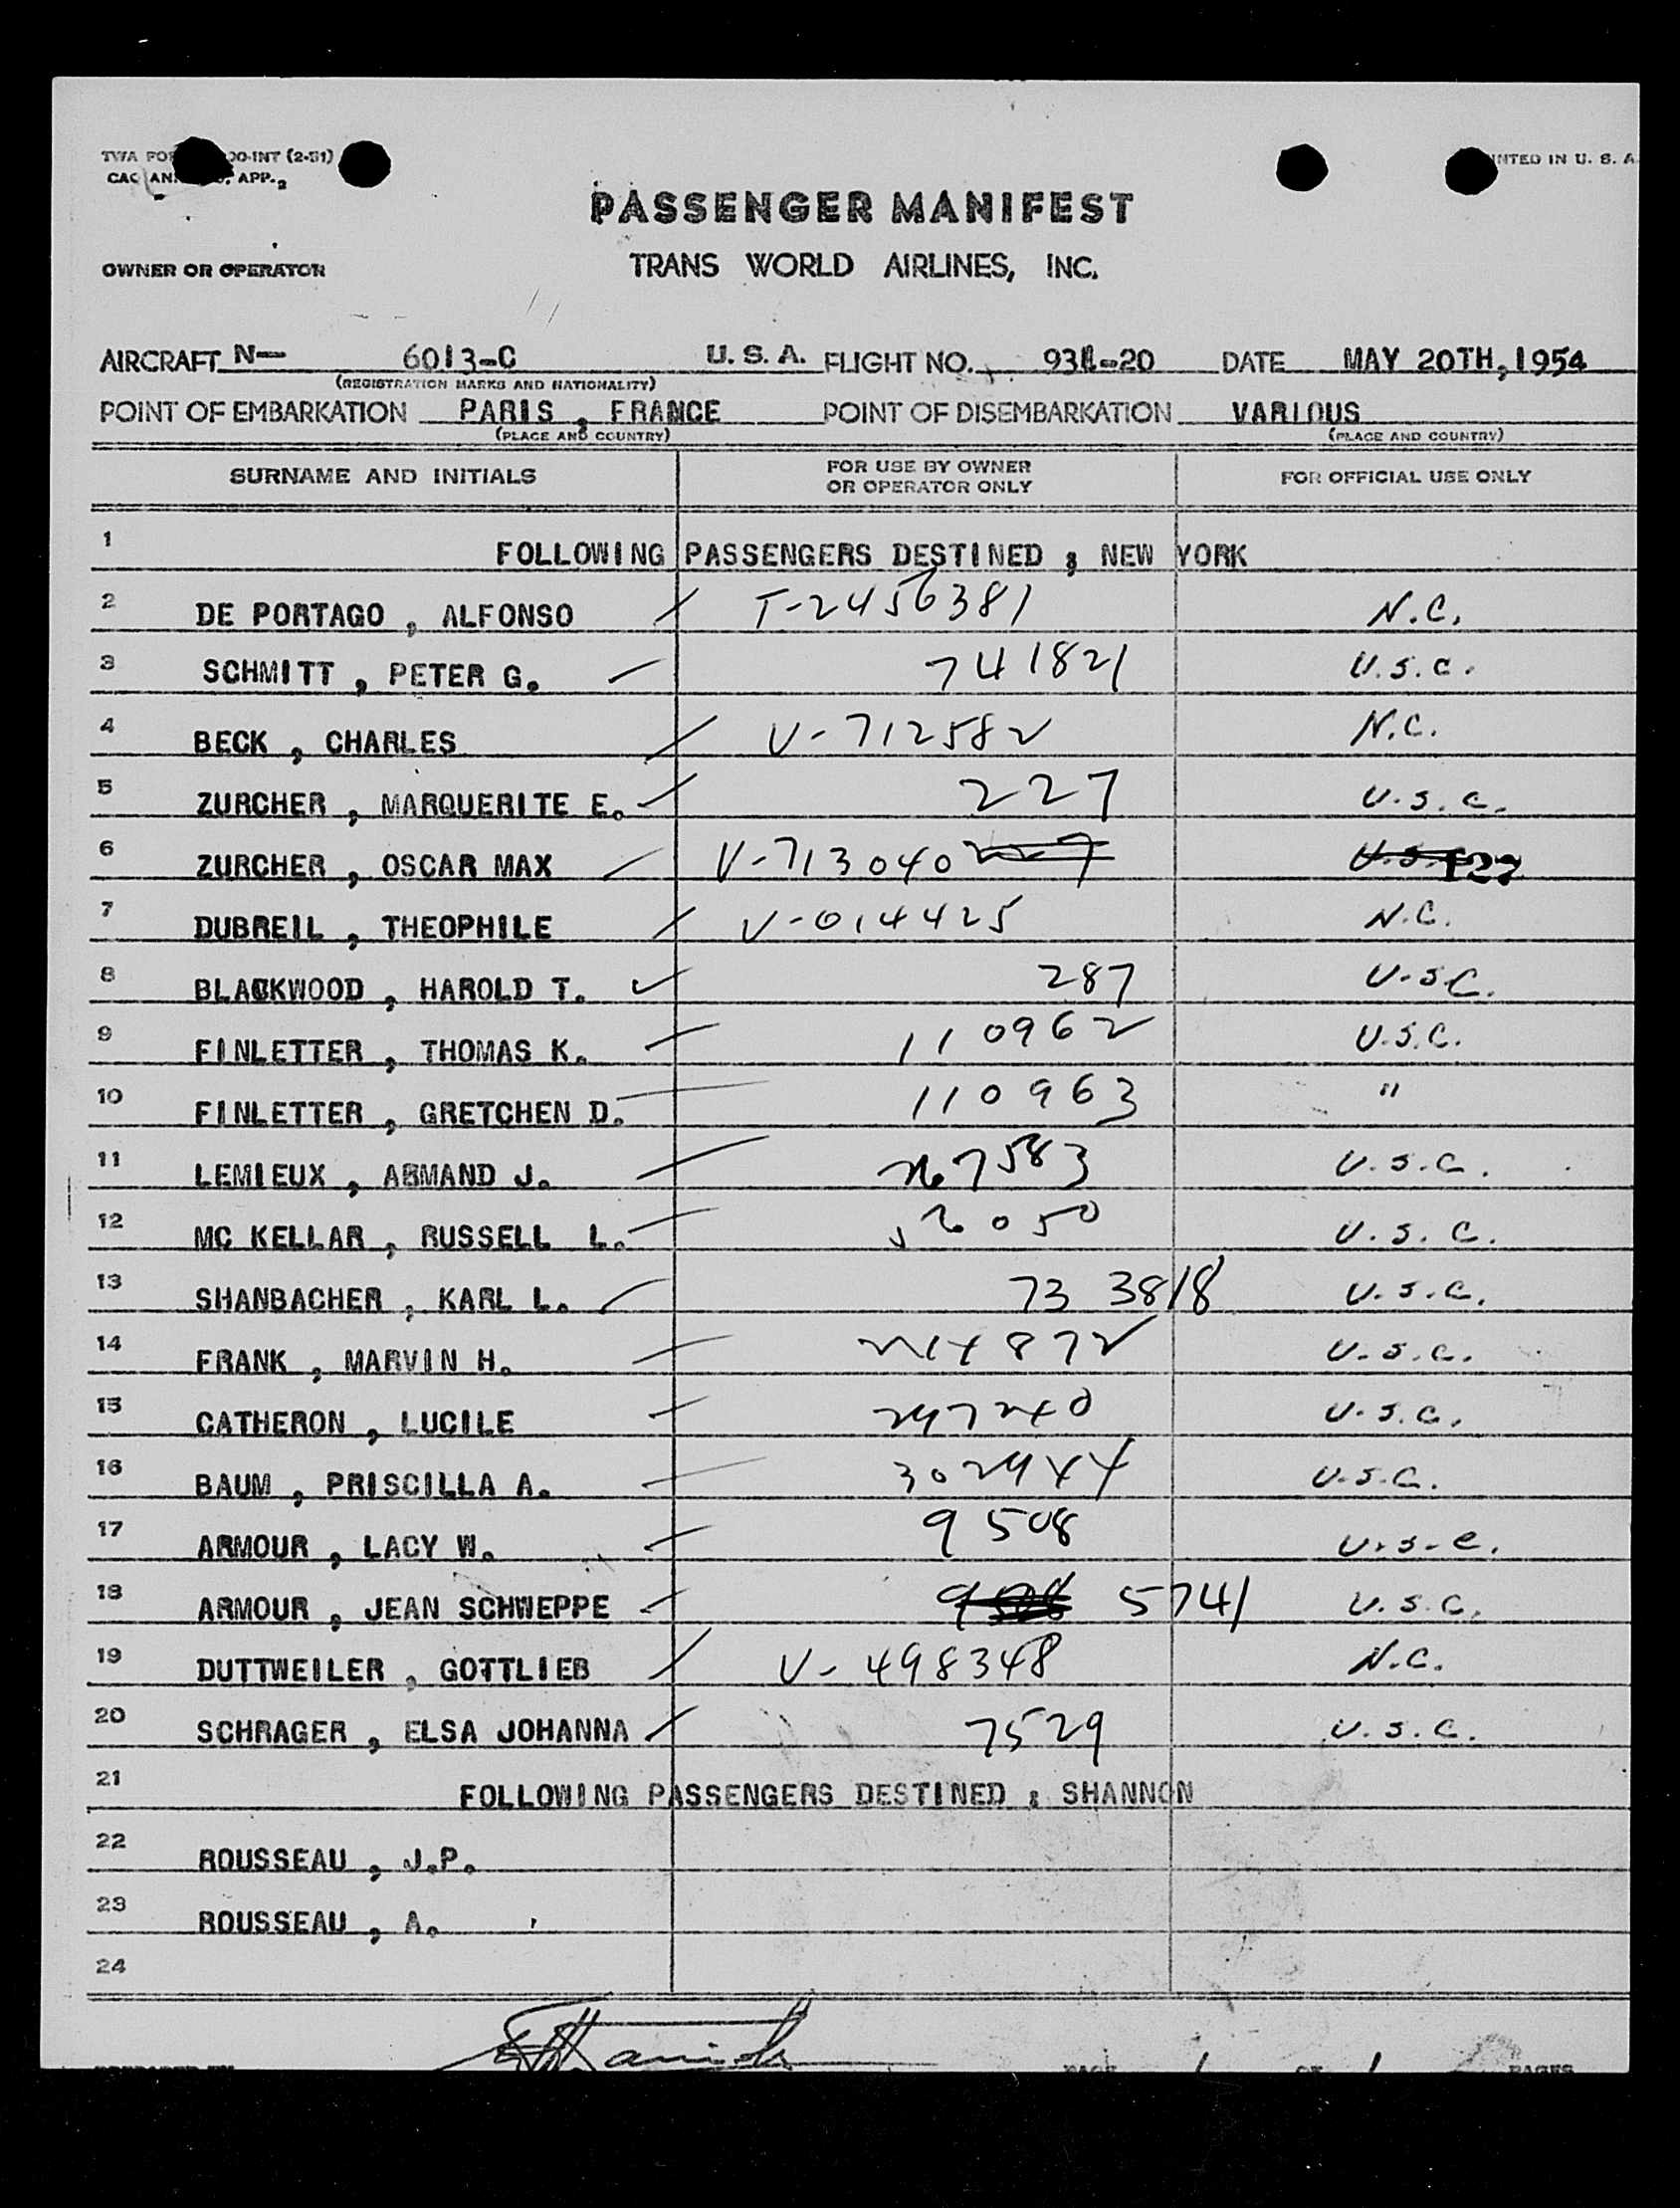 (2-51)
APP. 2
PASSENGER MANIFEST
OWNER OR OPERATOR TRANS WORLD AIRLINES, INC.
AIRCRAFT N— 6013-C U. S. A. FLIGHT NO. DATE MAY 20TH, 1954
(REGISTRATION MARKS AND NATIONALITY)
POINT OF EMBARKATION PARIS , FRANCE POINT OF DISEMBARKATION VARIOUS
(PLACE AND COUNTRY) (PLACE AND COUNTRY)
SURNAME AND INITIALS FOR USE BY OWNER OR OPERATOR ONLY FOR OFFICIAL USE ONLY
1 FOLLOWING PASSENGERS DESTINED ; NEW YORK
2 DE PORTAGO , ALFONSO T-2456381 N.C.
3 SCHMITT , PETER G. 741821 U.S.C.
4 BECK , CHARLES V-712582 N.C.
5 ZURCHER , MARQUERITE E. 227 U.S.C.
6 ZURCHER , OSCAR MAX V-713040 227 U.S.
7 DUBREIL , THEOPHILE V-014425 N.C.
8 BLACKWOOD , HAROLD T. 287 U.S.C.
9 FINLETTER , THOMAS K. 110962 U.S.C.
10 FINLETTER , GRETCHEN D. 110963 "
11 LEMIEUX , ARMAND J. U.S.C.
12 MC KELLAR , RUSSELL L. 526050 U.S.C.
13 SHANBACHER , KARL L. 73 3818 U.S.C.
14 FRANK , MARVIN H. 214872 U.S.C.
15 CATHERON , LUCILE 297240 U.S.C.
16 BAUM , PRISCILLA A. 302944 U.S.C.
17 ARMOUR , LACY W. 9508 U.S.C.
18 ARMOUR , JEAN SCHWEPPE 5741 U.S.C.
19 DUTTWEILER , GOTTLIEB V-498348 N.C.
20 SCHRAGER , ELSA JOHANNA 7529 U.S.C.
21 FOLLOWING PASSENGERS DESTINED ; SHANNON
22 ROUSSEAU , J.P.
23 ROUSSEAU , A.
24
PAGE 1 OF 1 PAGES